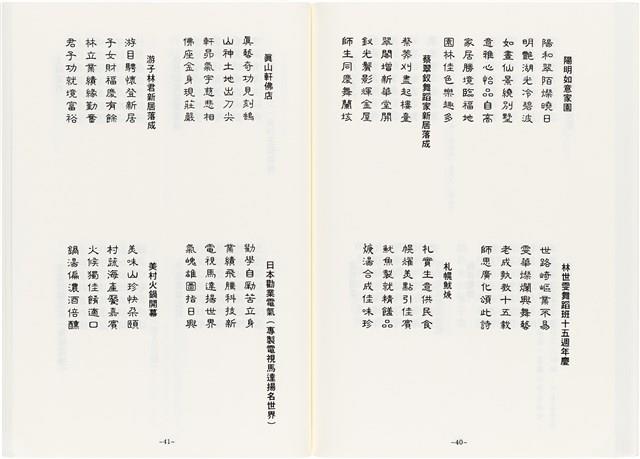 陽明如意家園
陽和翠陌燦曉日
明艷湖光冷碧波
如畫仙景繞別墅
意雅心怡品自高
家居勝境臨福地
園林佳色樂趣多
蔡翠釵舞蹈家新居落成
蔡蓁刈盡起樓臺
翠閣增新華堂開
釵光鬢影輝金屋
師生同慶舞蘭垓
林世雯舞蹈班十五週年慶
世路崎嶇業不易
雯華燦爛興舞藝
老成執教十五載
師恩廣化頌此詩
札幌魷焿
札實生意供民食
幌燿美點引佳賓
魷魚製就精饈品
焿湯合成佳味珍
-40-
真山軒佛店
真藝奇功見刻鶴
山神土地出刀尖
軒昂氣宇慈悲相
佛座金身現莊嚴
游子林君新居落成
游目騁懷登新居
子女財福慶有餘
林立業績緣勤奮
君子功就境富裕
日本勸業電氣（專製電視馬達揚名世界）
勸學自勵苦立身
業績飛騰科技新
電視馬達揚世界
氣魄雄圖指日興
美村火鍋開幕
美味山珍快朵頤
村蔬海產饜嘉賓
火候獨佳饒適口
鍋湯偏濃酒倍醺
-41-